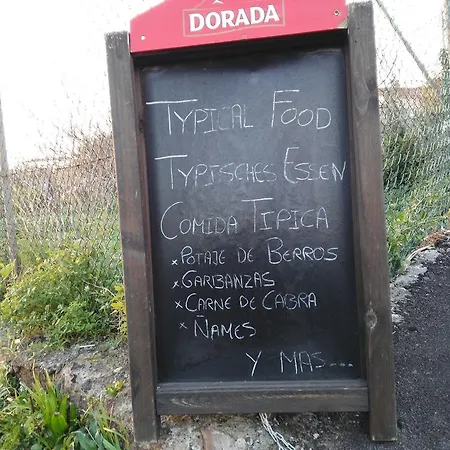 DORADA
TYPICAL FOOD
TYPISCHES ESSEN
COMIDA TIPICA
×POTAJE DE BERROS
×GARIBANZAS
×CARNE DE CABRA
×ÑAMES
Y MAS...